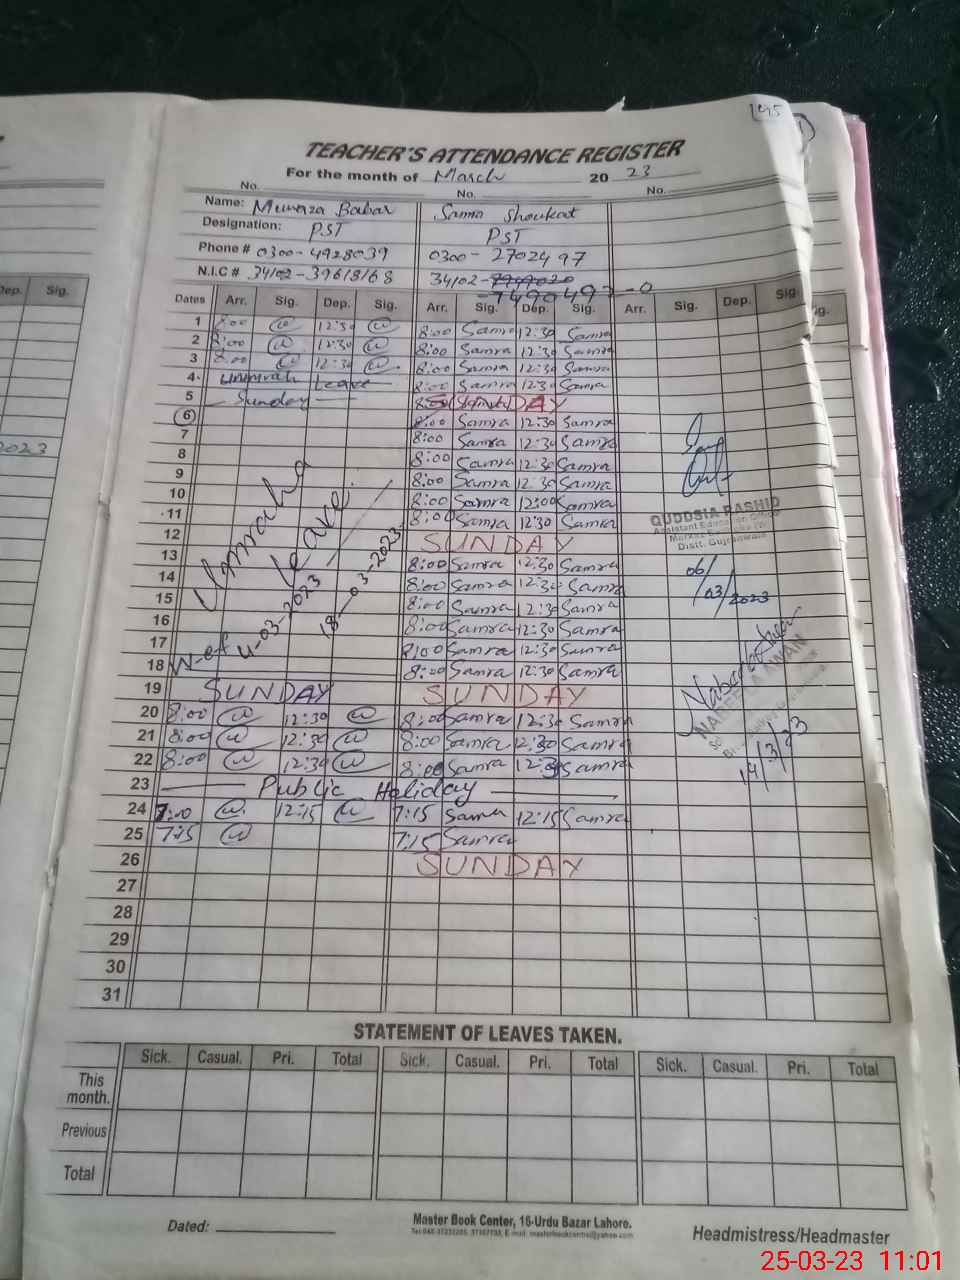 TEACHER'S ATTENDANCE REGISTER
For the month of March 20 23
No. No. No.
Name: Munaza Babar Samra Shoukat
Designation: PST PST
Phone # 0300-4928039 0300-2702497
N.I.C # 34102-3961816 8 34102-
-7490497-0
Dep. Sig.
Dates Arr. Sig. Dep. Sig. Arr. Sig. Dep. Sig. Arr. Sig. Dep. Sig.
1 8:00 12:30 8:00 Samra 12:30 Samra
2 8:00 12:30 8:00 Samra 12:30 Samra
3 8:00 12:30 8:00 Samra 12:30 Samra
4 ummrah Leave 8:00 Samra 12:30 Samra
5 Sunday SUNDAY
6 8:00 Samra 12:30 Samra
7 8:00 Samra 12:30 Samra
8 8:00 Samra 12:30 Samra
9 8:00 Samra 12:30 Samra
10 8:00 Samra 12:00 Samra
11 8:00 Samra 12:30 Samra
12 SUNDAY
13 8:00 Samra 12:30 Samra
14 8:00 Samra 12:30 Samra
15 8:00 Samra 12:30 Samra
16 8:00 Samra 12:30 Samra
17 8:00 Samra 12:30 Samra
18 8:00 Samra 12:30 Samra
Ummraha
Leave.
W-ef 4-03-2023
18-03-2023
QUDDSIA RASHID
Assistant Education Officer
Distt. Gujranwala
06/03/2023
NABEELA AWAN
14/3/23
19 SUNDAY SUNDAY
20 8:00 12:30 8:00 Samra 12:30 Samra
21 8:00 12:30 8:00 Samra 12:30 Samra
22 8:00 12:30 8:00 Samra 12:30 Samra
23 Public Holiday
24 7:00 12:15 7:15 Samra 12:15 Samra
25 7:15 7:15 Samra
26 SUNDAY
27
28
29
30
31
STATEMENT OF LEAVES TAKEN.
Sick. Casual. Pri. Total Sick. Casual. Pri. Total Sick. Casual. Pri. Total
This month.
Previous
Total
Dated:
Master Book Center, 16-Urdu Bazar Lahore.
Headmistress/Headmaster
25-03-23 11:01